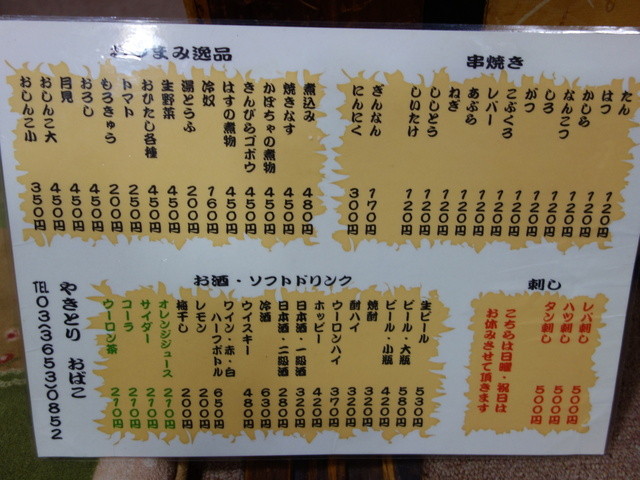 おつまみ逸品
煮込み 480円
焼きなす 450円
かぼちゃの煮物 450円
きんぴらゴボウ 450円
はすの煮物 450円
冷奴 160円
湯とうふ 200円
生野菜 450円
おひたし各種 450円
トマト 250円
もろきゅう 200円
おろし 450円
月見 450円
おしんこ大 450円
おしんこ小 350円
串焼き
たん 120円
はつ 120円
かしら 120円
なんこつ 120円
しろ 120円
がつ 120円
こぶくろ 120円
レバー 120円
あぶら 120円
ねぎ 120円
ししとう 120円
しいたけ 120円
ぎんなん 170円
にんにく 300円
刺し
レバ刺し 500円
ハツ刺し 500円
タン刺し 500円
こちらは日曜・祝日は
お休みさせて頂きます
お酒・ソフトドリンク
生ビール 530円
ビール・大瓶 580円
ビール・小瓶 420円
焼酎 320円
酎ハイ 420円
ウーロンハイ 370円
ホッピー 420円
日本酒・一級酒 320円
日本酒・二級酒 280円
冷酒 630円
ウイスキー 480円
ワイン・赤・白
ハーフボトル 650円
レモン 200円
梅干し 200円
オレンジジュース 210円
サイダー 210円
コーラ 210円
ウーロン茶 210円
やきとり おばこ
TEL 03(3653)0852